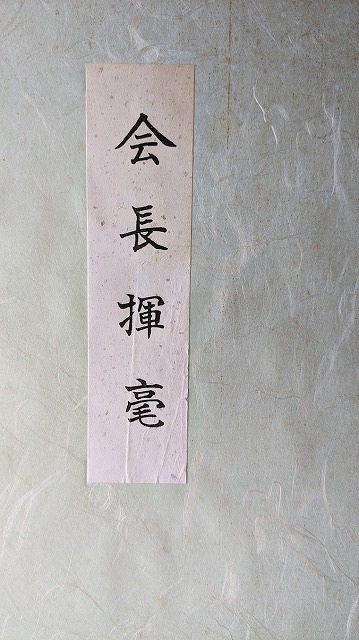 会長揮毫